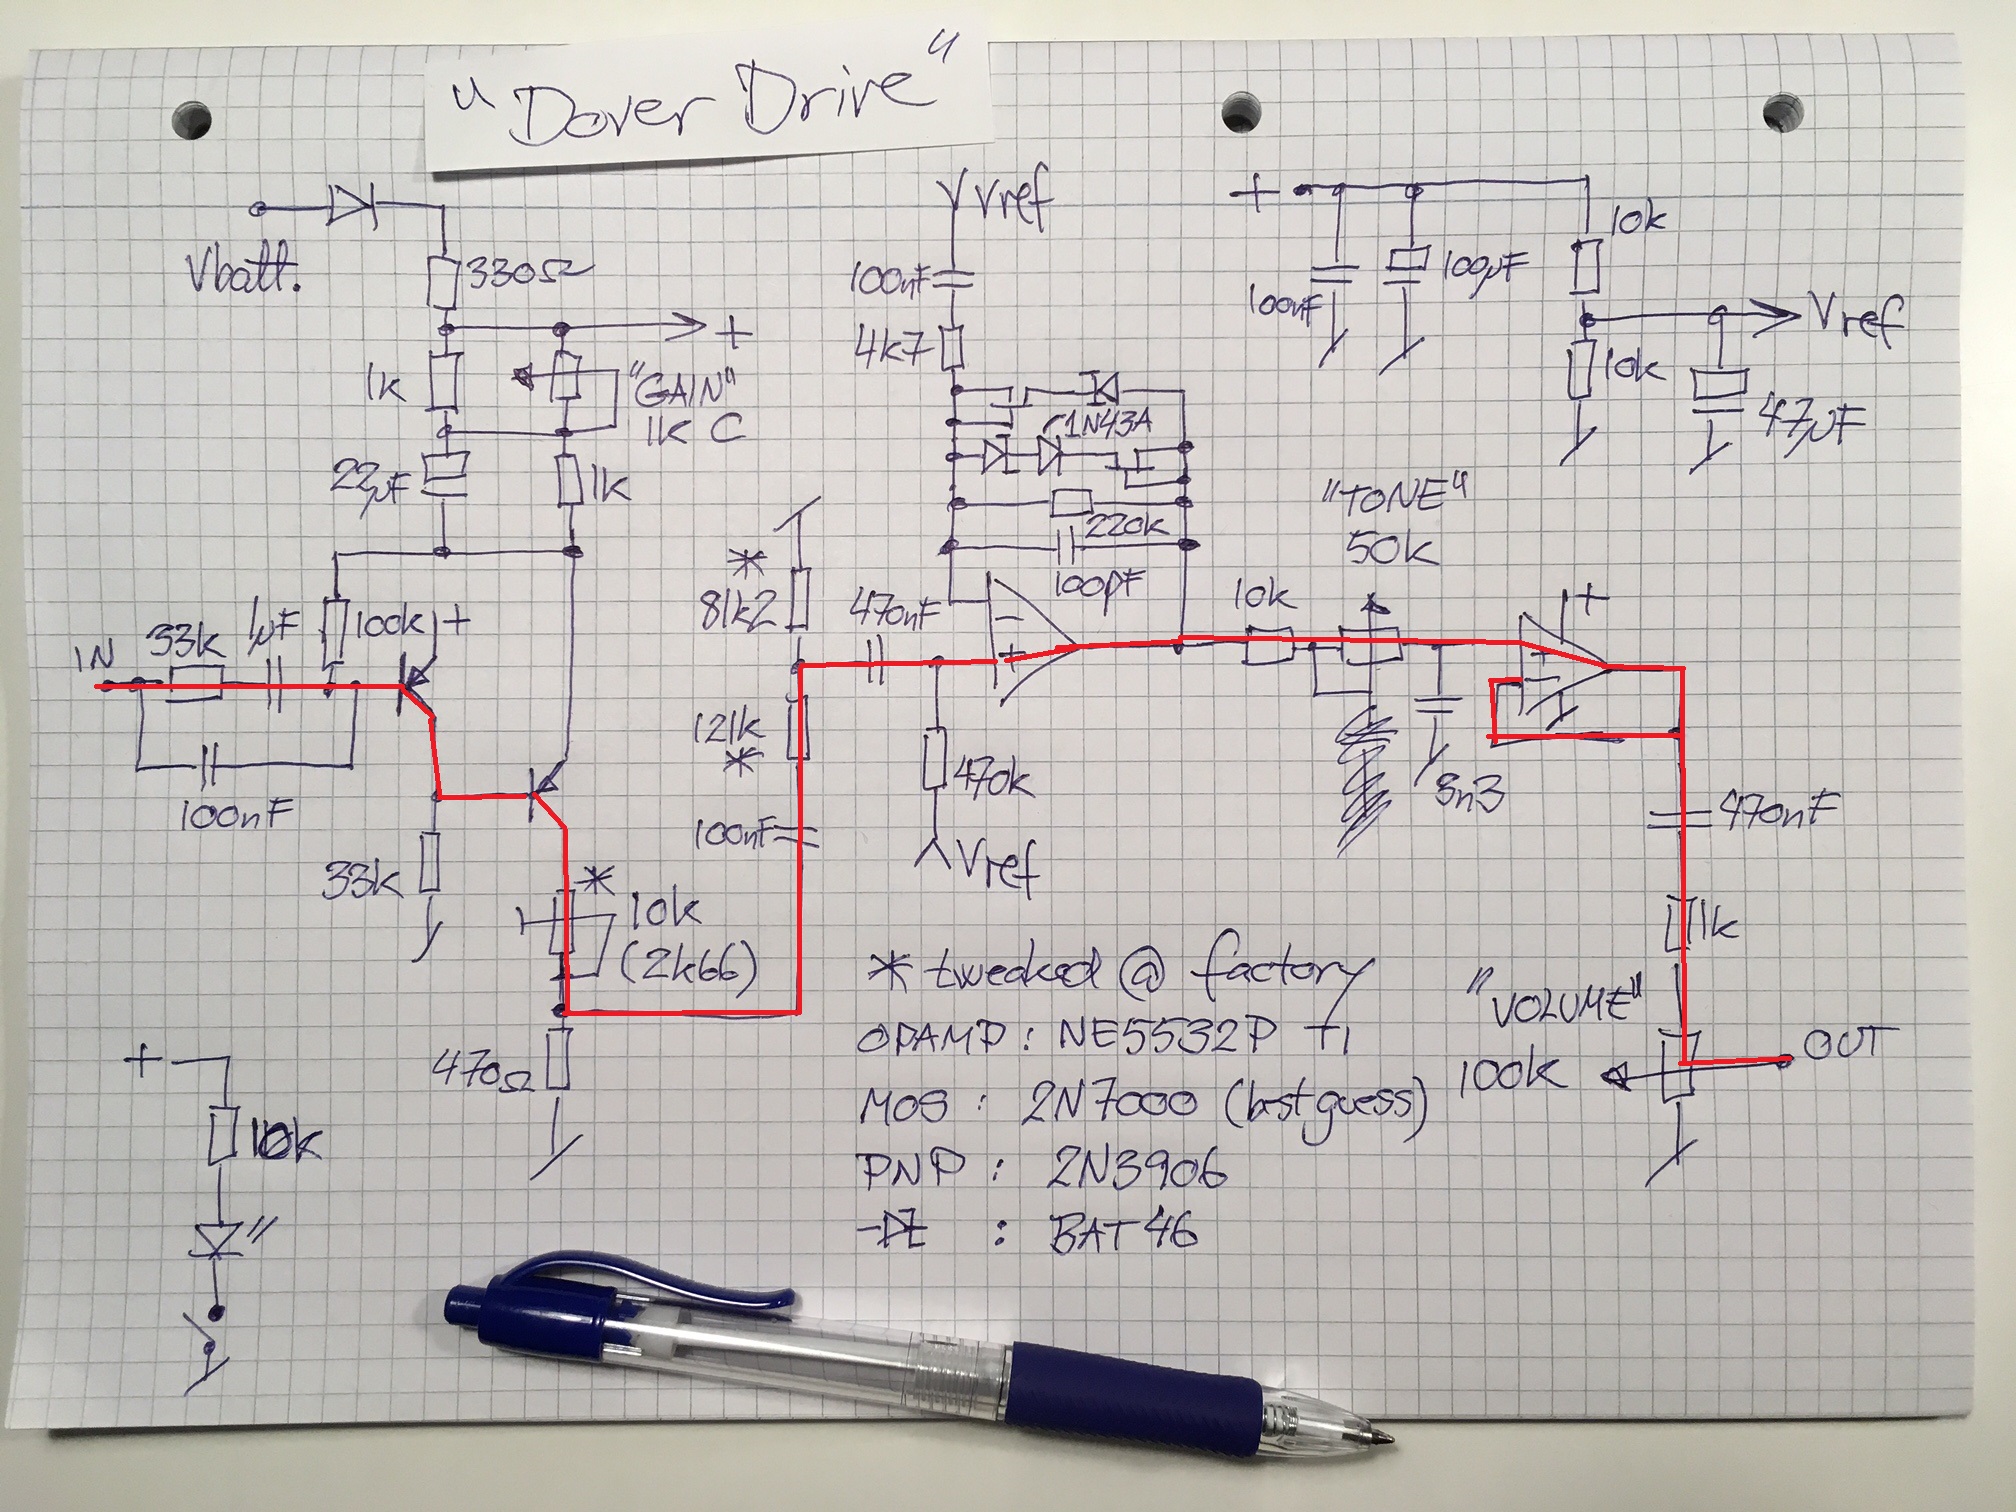 "Dover Drive"
Vbatt.
330Ω
+
1k
"GAIN"
1k C
22µF
1k
IN
33k
1µF
100k
+
100nF
33k
*
10k
(2k66)
470Ω
+
10k
Vref
100nF
4k7
1N43A
220k
100pF
*
81k2
470nF
121k
*
100nF
470k
Vref
+
100nF
100µF
10k
Vref
10k
47µF
"TONE"
50k
10k
+
3n3
470nF
1k
"VOLUME"
100k
OUT
* tweaked @ factory
OPAMP : NE5532P TI
MOS : 2N7000 (best guess)
PNP : 2N3906
: BAT46